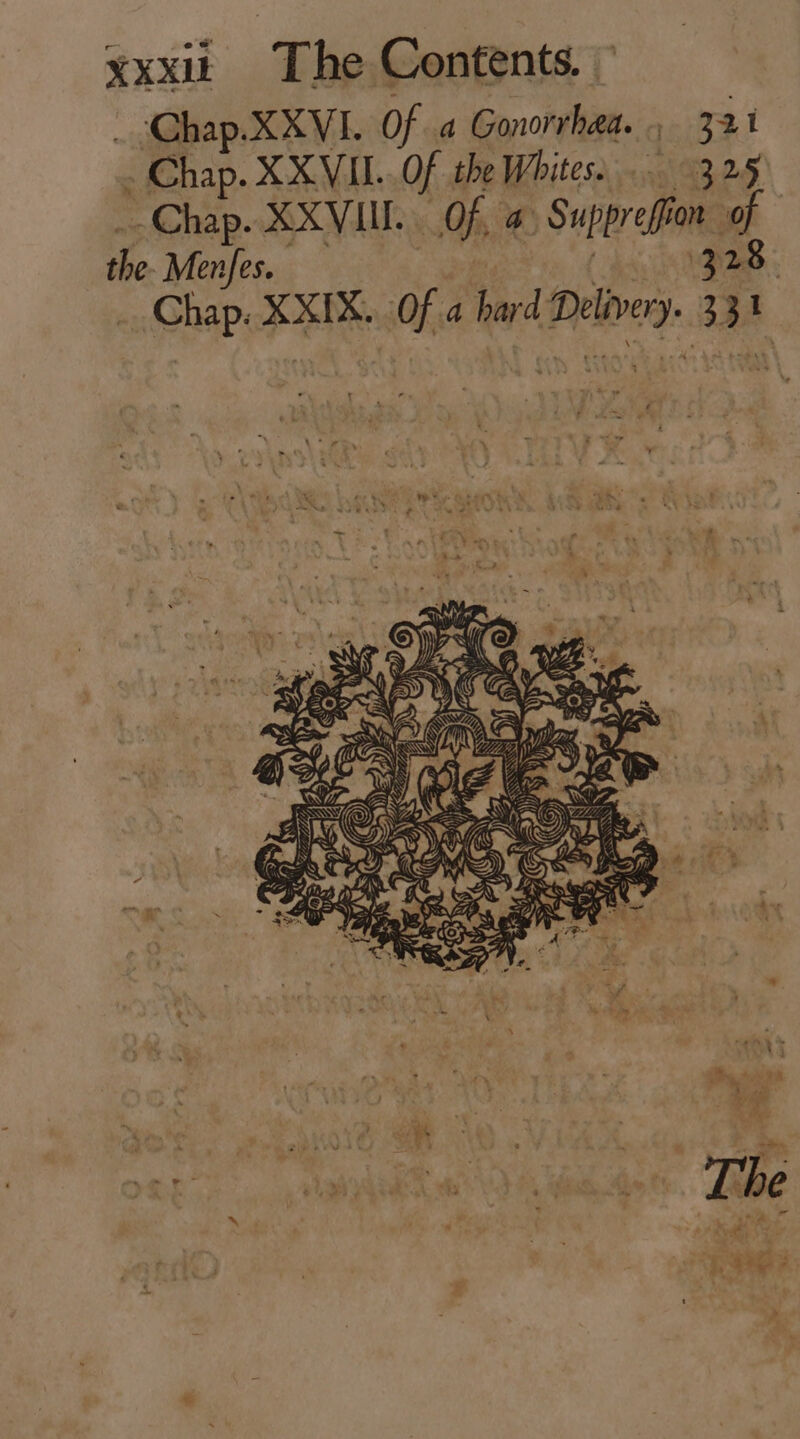 xxxii The Contents.
Chap. XXVI. Of a Gonorrhæa. 321
Chap. XXVII. Of the Whites. 325
Chap. XXVIII. Of a Suppreſſion of
the Menſes. 328
Chap. XXIX. Of a hard Delivery. 331
The